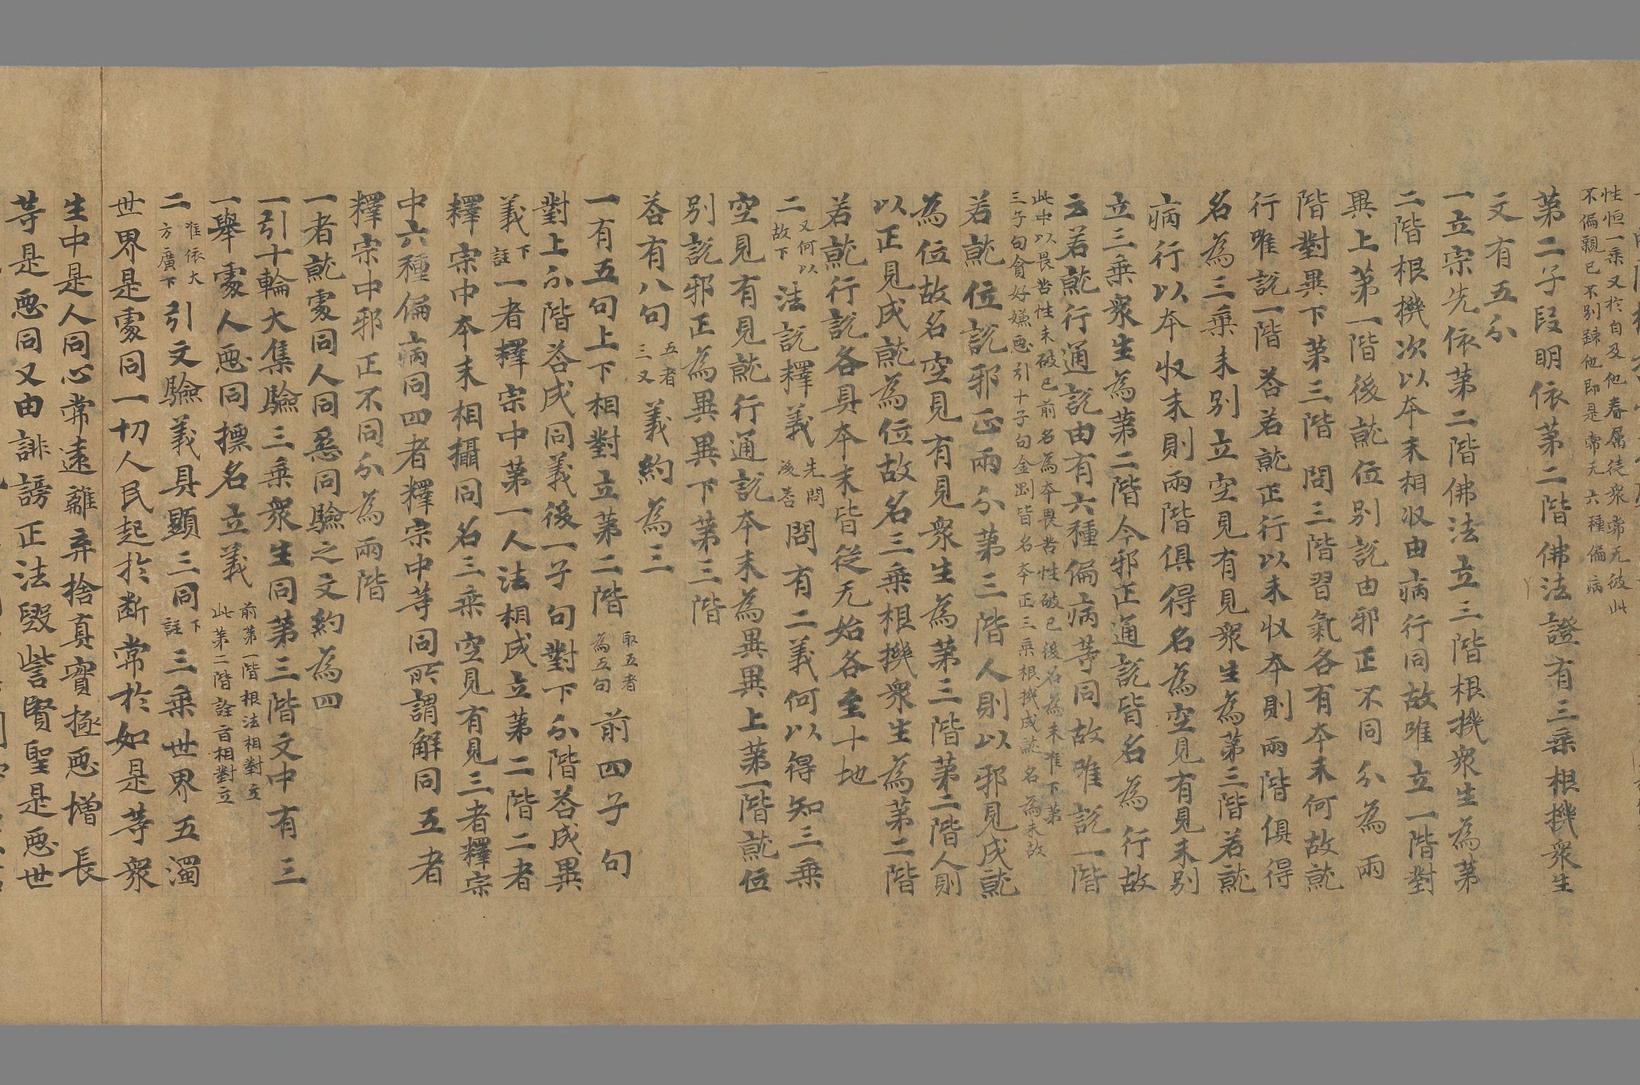 性恒一乘又於自及他眷属徒衆常无彼此
不偏親已不別踈他即是常无六種偏病
第二子段明依第二階佛法證有三乘根機衆生
文有五分
一立宗先依第二階佛法立三階根機衆生為第
二階根機次以夲末相收由病行同故唯立一階對
異上第一階後就位別說由邪正不同分為兩
階對異下第三階問三階習氣各有夲末何故就
行唯說一階荅若就正行以末收夲則兩階俱得
名為三乘未別立空見有見衆生為第三階若就
病行以夲收末則兩階俱得名為空見有見未別
立三乘衆生為第二階今邪正通說皆名為行故
云若就行通說由有六種偏病等同故唯說一階
此中以畏苦性未破已前名為夲畏苦性破已後名為末准下第
三子句貪好嫌惡引十子句金剛皆名夲正三乘根機成就名為末故
若就位說邪正兩分第三階人則以邪見成就
為位故名空見有見衆生為第三階第二階人則
以正見成就為位故名三乘根機衆生為第二階
若就行說各具夲末皆從无始各至十地
二又何以故下法說釋義先問後荅問有二義何以得知三乘
空見有見就行通說夲末為異異上第一階就位
別說邪正為異異下第三階
荅有八句五者三又義約為三
一有五句上下相對立第二階取五者為五句前四子句
對上分階荅成同義後一子句對下分階荅成異
義下註一者釋宗中第一人法相成立第二階二者
釋宗中夲末相攝同名三乘空見有見三者釋宗
中六種偏病同四者釋宗中等同所謂解同五者
釋宗中邪正不同分為兩階
一者就處同人同惡同驗之文約為四
一引十輪大集驗三乘衆生同第三階文中有三
一舉處人惡同摽名立義前第一階根法相對立此第二階詮旨相對立
二唯依大方廣下引文驗義具顯三同下註三乘世界五濁
世界是處同一切人民起於断常於如是等衆
生中是人同心常遠離弃捨真實極惡增長
等是惡同又由誹謗正法毀訾賢聖是惡世